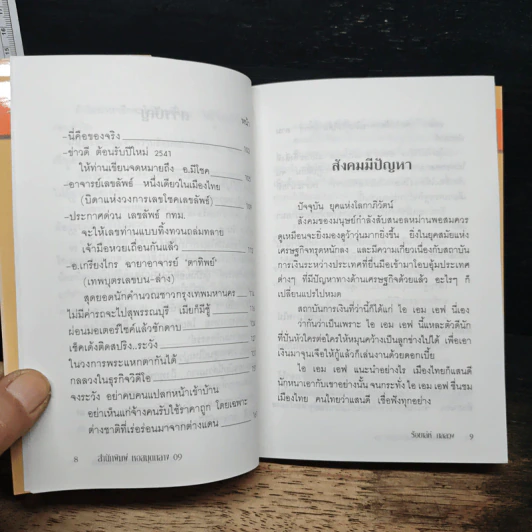 หน้า
-นี่คือของจริง
-ข่าวดี ต้อนรับปีใหม่ 2541
ให้ท่านเขียนจดหมายถึง อ.มีโชค
-อาจารย์เลขลัพธ์ หนึ่งเดียวในเมืองไทย
(บิดาแห่งวงการเลขไชโคเลขลัพธ์)
-ประกาศด่วน เลขลัพธ์ กทม.
จะให้เลขท่านแบบที่งทวนถล่มทลาย
เจ้ามือหวยเถื่อนกันแล้ว
-อ.เกรียงไกร ฉายาอาจารย์ "ตาทิพย์"
(เทพบุตรเลขบน-ล่าง)
สุดยอดนักคำนวณชาวกรุงเทพมหานคร
ไม่มีค่ารถจะไปสุพรรณบุรี เมียก็มีชู้
ผ่อนมอเตอร์ไซค์แล้วชักดาบ
เช็คเด้งติดสปริง..ระวัง
ในวงการพระแหกตากันได้
กลลวงในธุรกิจวิดีโอ
จงระวัง อย่าคบคนแปลกหน้าเข้าบ้าน
อย่าเห็นแก่จ้างคนรับใช้ราคาถูก โดยเฉพาะ
ต่างชาติที่เร่ร่อนมาจากต่างแดน
8 สำนักพิมพ์
สังคมมีปัญหา
ปัจจุบัน ยุคแห่งโลกาภิวัตน์
สังคมของมนุษย์กำลังสับสนอลหม่านพอสมควร
ดูเหมือนจะยิ่งมองดูว้าวุ่นมากยิ่งขึ้น ยิ่งในยุคสมัยแห่ง
เศรษฐกิจทรุดหนักลง และมีความเกี่ยวเนื่องกับสถาบัน
การเงินระหว่างประเทศที่ยื่นมือเข้ามาโอบอุ้มประเทศ
ต่างๆ ที่มีปัญหาทางด้านเศรษฐกิจด้วยแล้ว อะไรๆ ก็
เปลี่ยนแปรไปหมด
สถาบันการเงินที่ว่านี้ก็ได้แก่ ไอ เอม เอฟ นี่เอง
ว่ากันว่าเป็นเพราะ ไอ เอม เอฟ นี้แหละตัวดีนัก
ที่ปั่นหัวใครต่อใครให้หมุนคว้างเป็นลูกข่างไปได้ เพื่อเอา
เงินมาจุนเจือให้กู้แล้วก็เล่นงานด้วยดอกเบี้ย
ไอ เอม เอฟ แนะนำอย่างไร เมืองไทยก็แสนดี
นักหนาเอากับเขาอย่างนั้น จนกระทั่ง ไอ เอม เอฟ ชื่นชม
เมืองไทย คนไทยว่าแสนดี เชื่อฟังทุกอย่าง
9